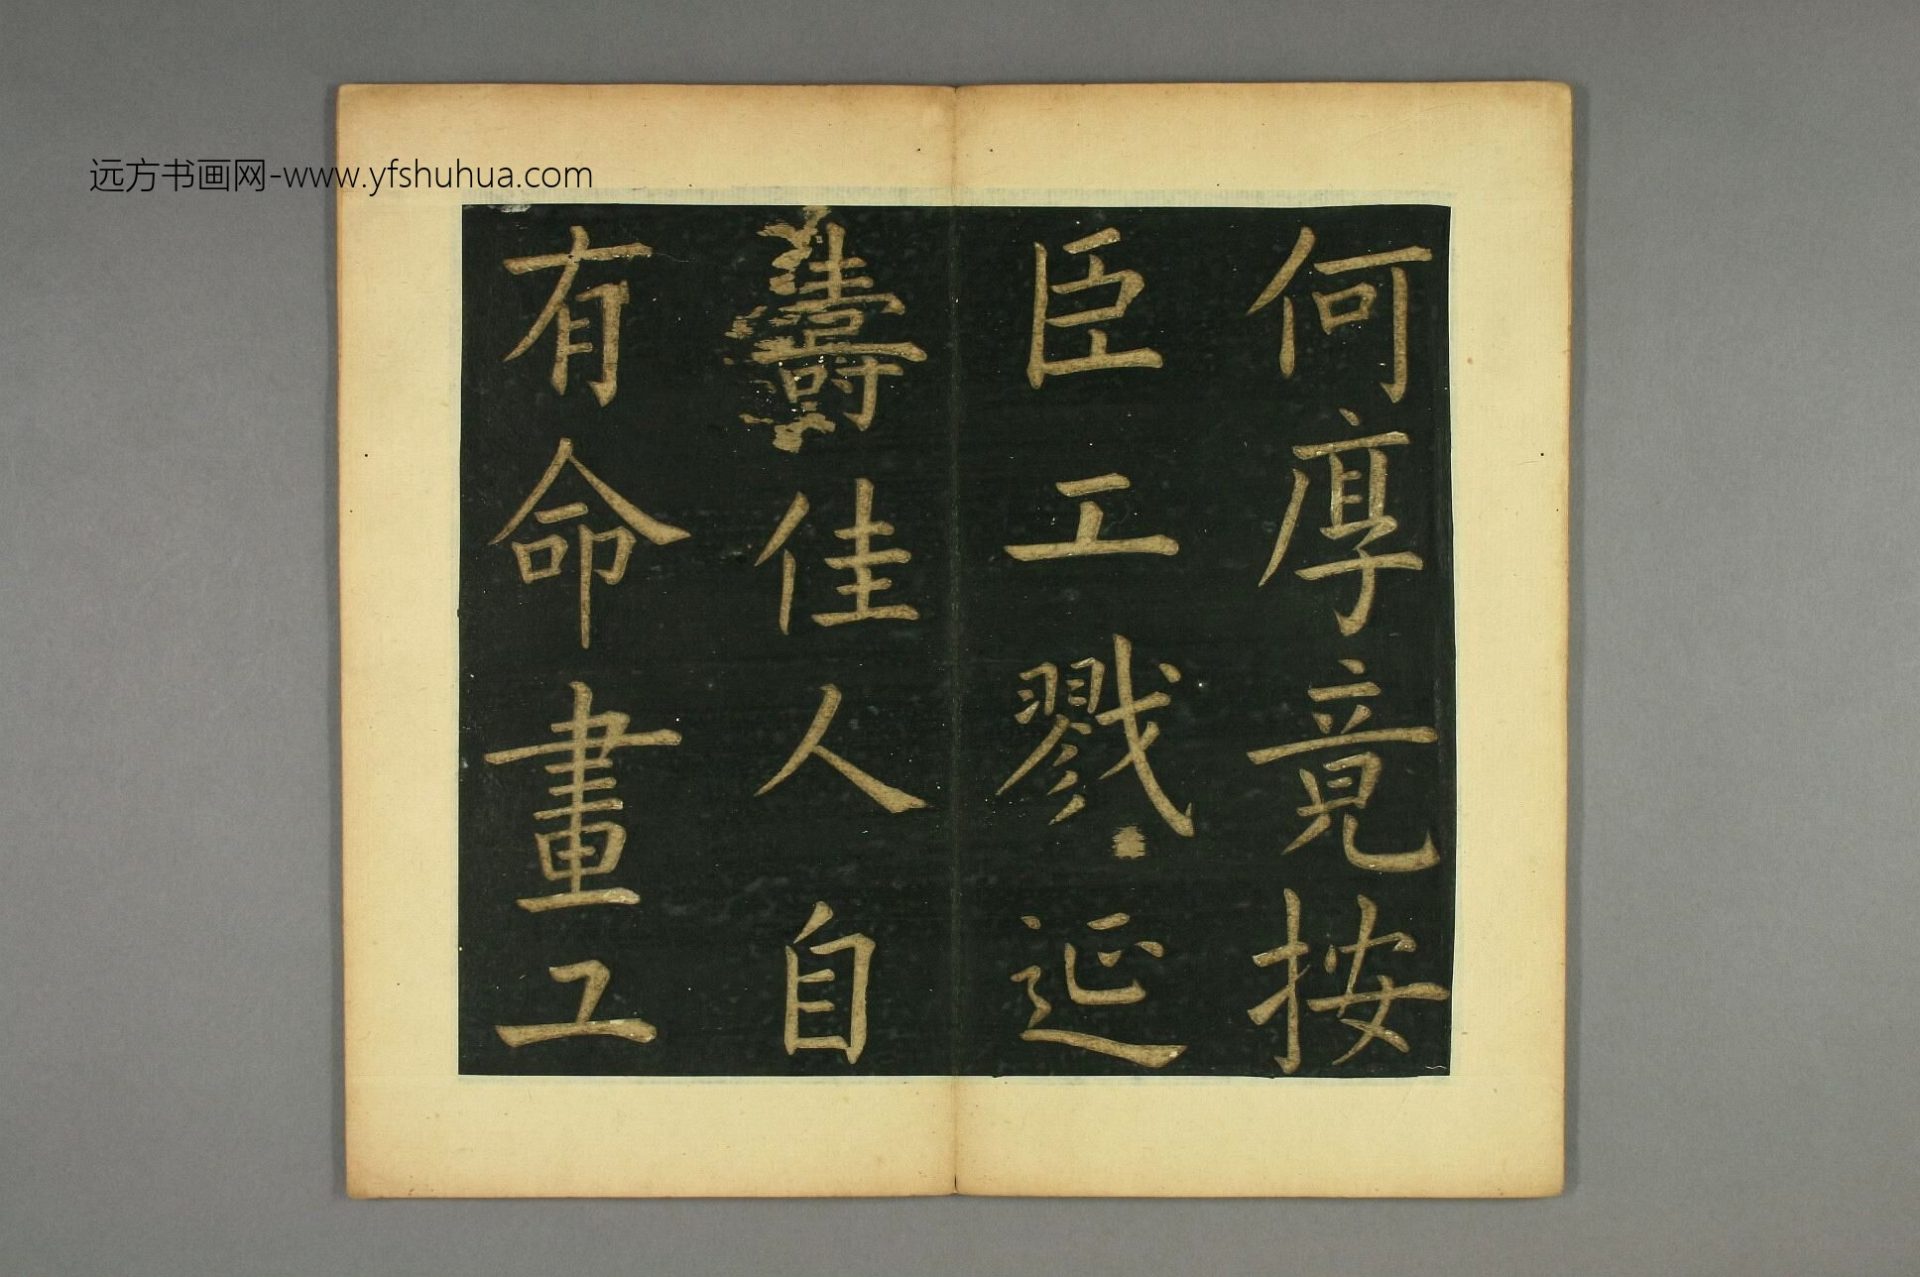 远方书画网-www.yfshuhua.com
何厚竟按
臣工戮延
壽佳人自
有命畫工